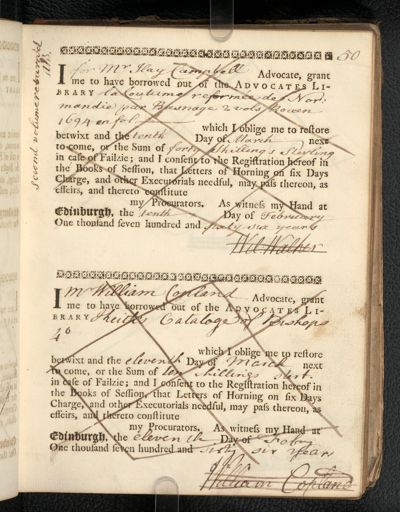 50
Second volume returned
I for Mr. Ilay Campbell Advocate, grant
me to have borrowed out of the ADVOCATES LI-
BRARY la Coutume reformée de Nor
mandie par Basnage 2 vols Rouen
1694 en fol
which I oblige me to restore
betwixt and the tenth Day of March next
to come, or the Sum of forty shillings Sterling
in case of Failzie; and I consent to the Registration hereof in
the Books of Session, that Letters of Horning on six Days
Charge, and other Executorials needful, may pass thereon, as
effeirs, and thereto constitute
my Procurators. As witness my Hand at
Edinburgh, the tenth Day of February
One thousand seven hundred and sixty six years
Wil Walker
I Mr William Copland Advocate, grant
me to have borrowed out of the ADVOCATES LI-
BRARY Keith's Catalogue of Bishops
4o
which I oblige me to restore
betwixt and the eleventh Day of March next
to come, or the Sum of ten shillings Sterl.
in case of Failzie; and I consent to the Registration hereof in
the Books of Session, that Letters of Horning on six Days
Charge, and other Executorials needful, may pass thereon, as
effeirs, and thereto constitute
my Procurators. As witness my Hand at
Edinburgh, the eleventh Day of Febry
One thousand seven hundred and sixty six years
William Copland